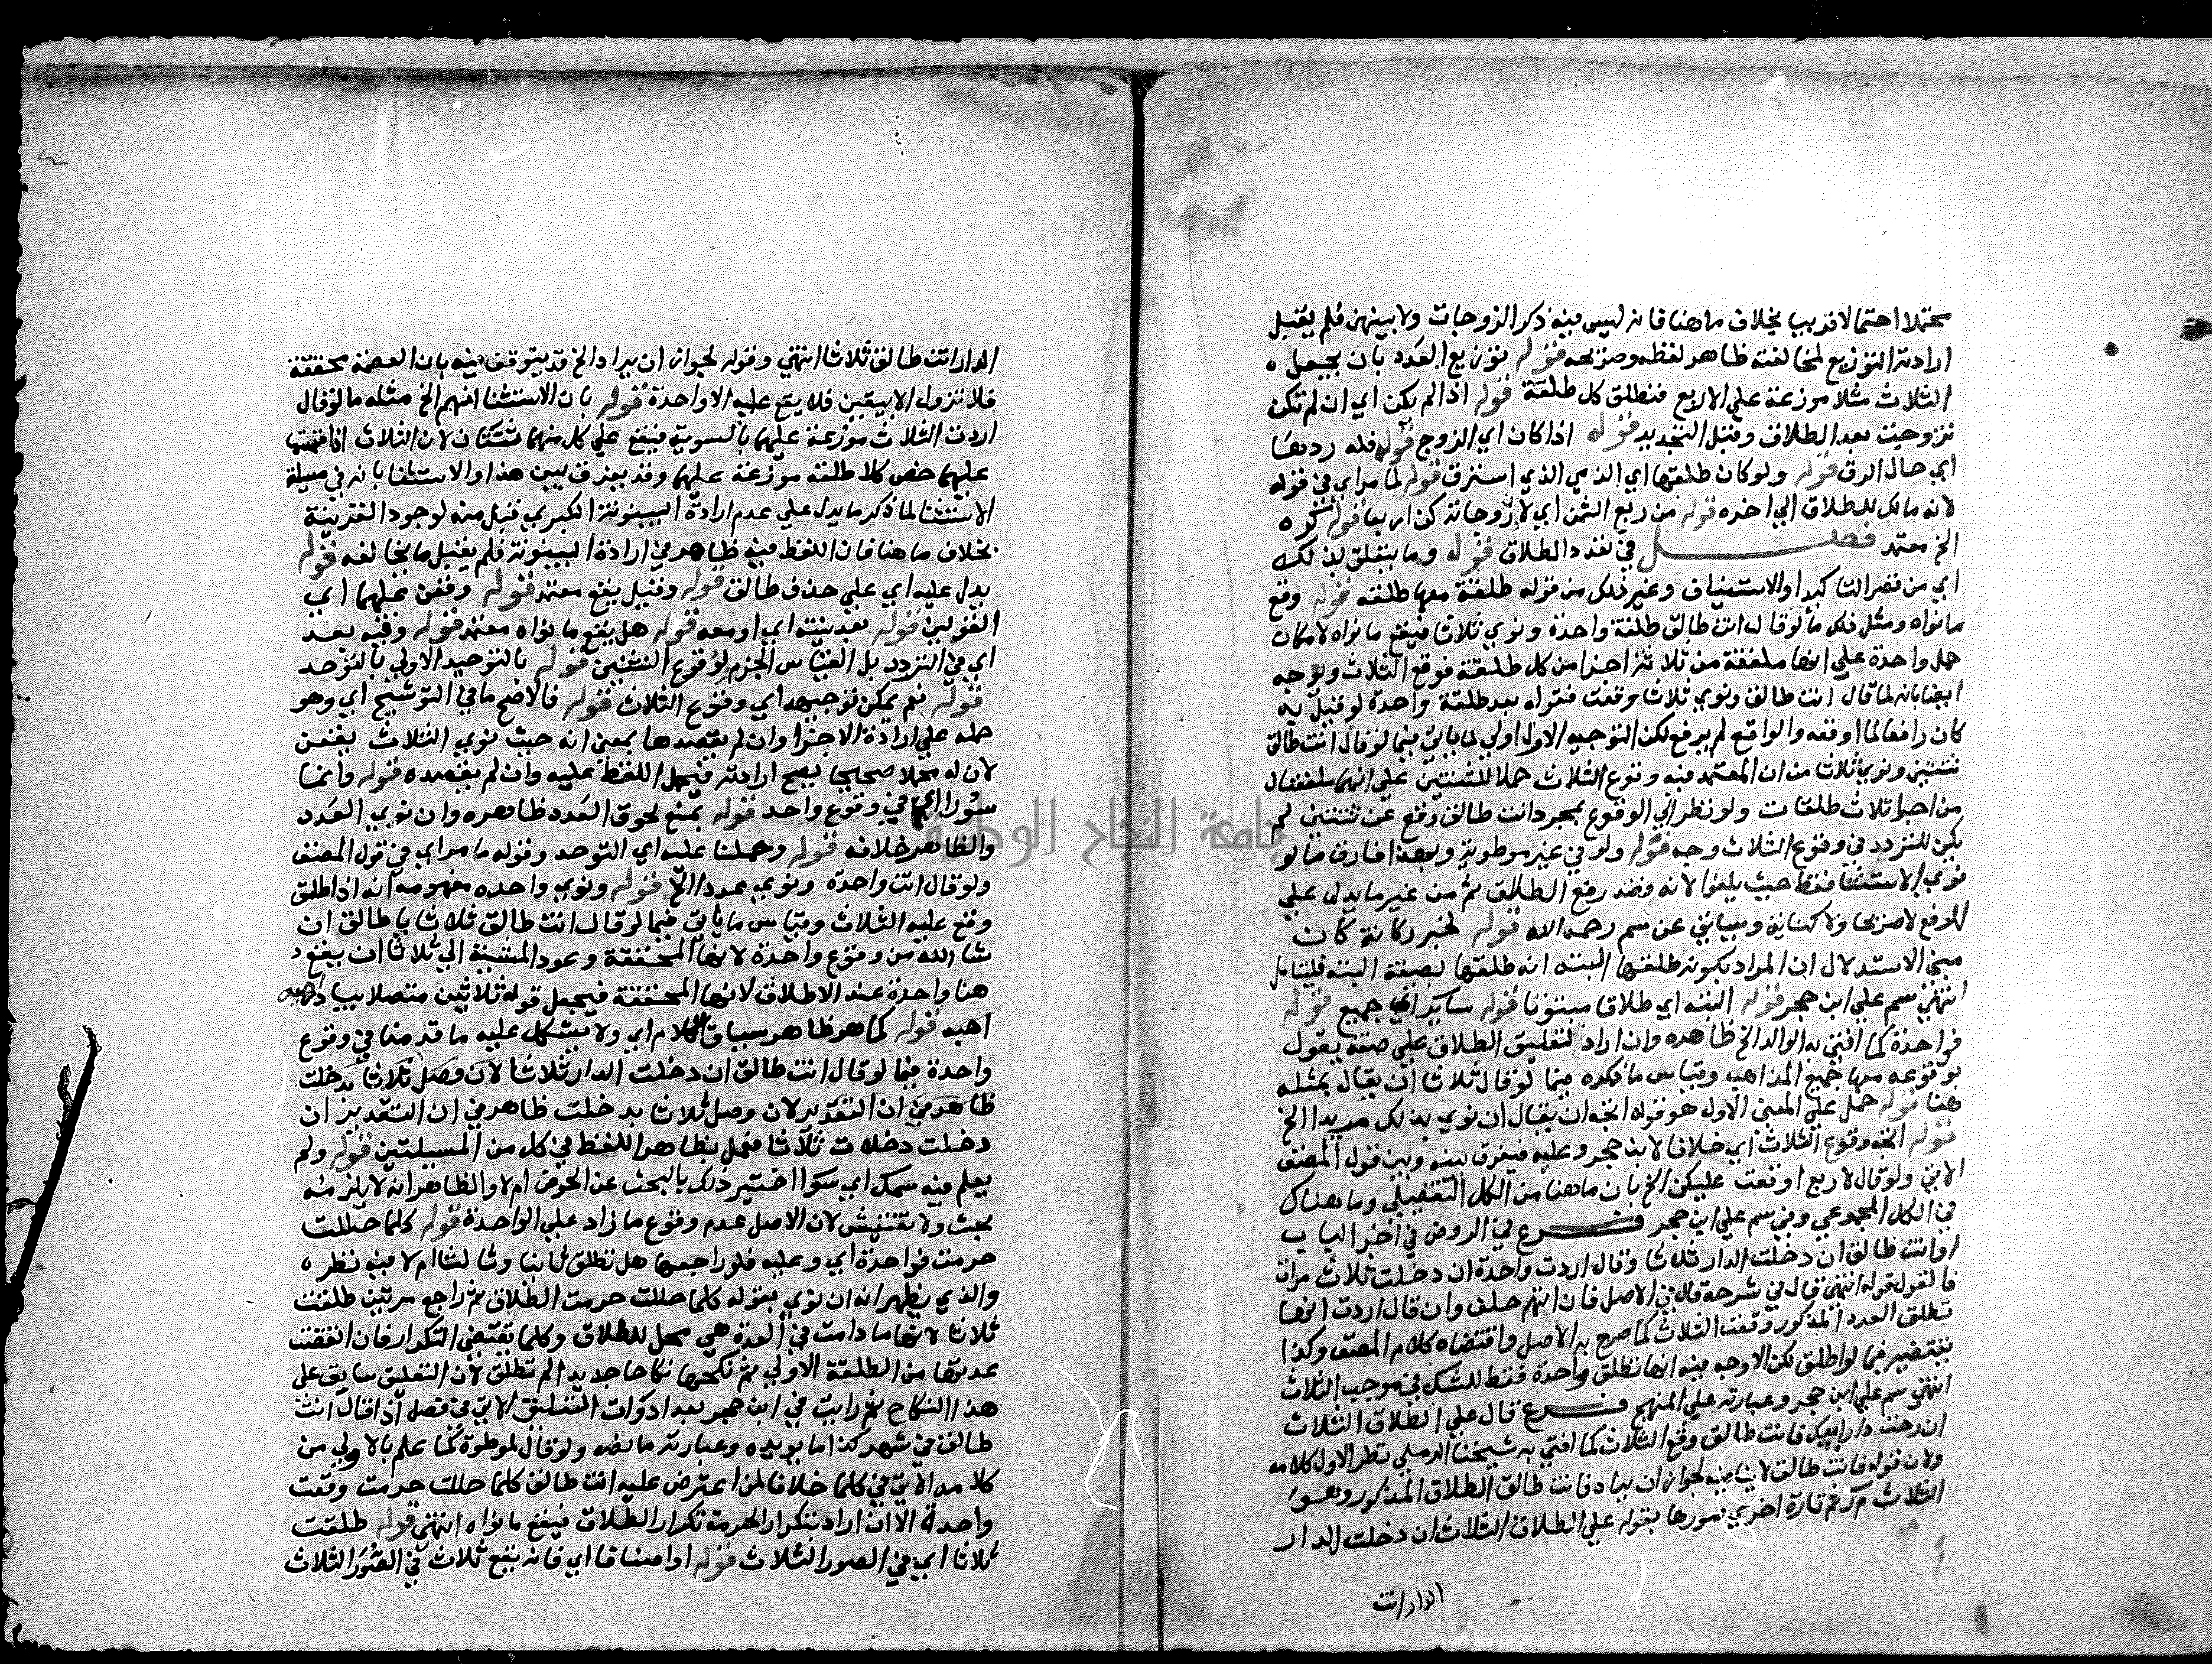 محتملا احتمالا قريبا بخلاف ما هنا فانه ليس فيه ذكر الزوجات ولا بينهن فلم يقبل
ارادته التوزيع لمخالفته ظاهر لفظه وصريحه قوله توزيع العدد بان يجعل
الثلاث مثلا موزعة علي الاربع فتطلق كل طلقة قوله اذا لم يكن اي ان لم تكن
تزوجت بعد الطلاق وقبل التجديد قوله اذا كان اي الزوج قوله فله ردها
اي حال الرق قوله ولو كان طلقها اي الذمي الذي استرق قوله لما مر اي في قوله
لانه مالك للطلاق الي اخره قوله من ربع الثمن اي لا زوجاته كن اربعا قوله
الخ معتمد فصل في تعدد الطلاق قوله وما يتعلق بذلك
اي من قصر التاكيد او الاستيناف وغير ذلك من قوله طلقة معها طلقة قوله وقع
ما نواه ومثل ذلك ما لو قال انت طالق طلقة واحدة ونوي ثلاثا فيقع ما نواه لامكان
حمل واحدة علي انها ملفقة من ثلاثة اجزا من كل طلقة فوقع الثلاث ويوجه
ايضا بانه لما قال انت طالق ونوي ثلاثا وقعت فقوله بعد طلقة واحدة لو قبل به
كان رافعا لما اوقعه والواقع لم يرفع لكن التوجيه الاول اولي لما ياتي فيما لو قال انت طالق
ثنتين ونوي ثلاثا من ان المعتمد فيه وقوع الثلاث حملا للثنتين علي انهما ملفقتان
من اجزا ثلاث طلقات ولو نظر الي الوقوع بمجرد انت طالق وقع عن ثنتين لم
يكن للتردد في وقوع الثلاث وجه قوله ولو في غير موطوءة وبهذا فارق ما لو
نوي الاستثنا فقط حيث يلغوا لانه قصد رفع الطلاق ثم من غير ما يدل علي
الرفع لا صريحا ولا كناية وسياتي عن سم رحمه الله قوله لخبر ركانة كان
مبني الاستدلال ان المراد بكونه طلقها البتة انه طلقها بصيغة البتة فليتامل
انتهي سم علي ابن حجر قوله البتة اي طلاق مبتوتا قوله اي جميع قوله
فواحدة كما افتي به الوالد الخ ظاهره وان اراد تعليق الطلاق علي صفة يقول
بوقوعه معها جميع المذاهب وقياس ما ذكره فيما لو قال ثلاثا ان يقال بمثله
هنا قوله حمل علي المعني الاول هو قوله اتجه ان يقال ان نوي بذلك الخ
قوله اتجه وقوع الثلاث اي خلافا لابن حجر وعليه فيفرق بينه وبين قول المصنف
الاتي ولو قال لاربع اوقعت عليكن الخ بان ما هنا من الكل التفصيلي وما هناك
في الكل المجموعي وفي سم علي ابن حجر فرع في الروض في اخر الباب
او انت طالق ان دخلت الدار ثلاثا وقال اردت واحدة ان دخلت ثلاث مرات
فالقول قوله انتهي قال في شرحه قال في الاصل فان اتهم حلف وان قال اردت انها
تطلق العدد المذكور وقعت الثلاث كما صرح به الاصل واقتضاه كلام المصنف وكذا
يقتضيه فيما لو اطلق لكن الاوجه فيه انها تطلق واحدة فقط للشك في موجب الثلاث
انتهي سم علي ابن حجر وعبارته علي المنهج فرع قال علي الطلاق الثلاث
ان رحت دار ابيك فانت طالق وقع الثلاث كما افتي به شيخنا الرملي نظر الاول كلامه
ولان قوله فانت طالق لاينافيه لجواز ان يراد فانت طالق الطلاق المذكور وهو
الثلاث ثم تارة اخري صورها بقوله علي الطلاق الثلاث ان دخلت الدار
الدار انت
الدار انت طالق ثلاثا انتهي وقوله لجواز ان يراد الخ قد يتوقف فيه بان العصمة محققة
فلا تزول الا بيقين فلا يقع عليه الا واحدة قوله بان الاستثنا افهم الخ مثله ما لو قال
اردت الثلاث موزعة عليهما بالسوية فيقع علي كل منهما ثنتان لان الثلاث اذا قسمت
عليهما خص كلا طلقة موزعة عليهما وقد يفرق بين هذا والاستثنا بانه في مسيلة
الاستثنا لما ذكر ما يدل علي عدم ارادة البينونة الكبري قبل منه لوجود القرينة
بخلاف ما هنا فان اللفظ فيه ظاهر في ارادة البينونة فلم يقبل ما يخالفه قوله
يدل عليه اي علي حذف طالق قوله وقيل يقع معتمد قوله وقعن عليهما اي
القولين قوله بعد نيته اي او معه قوله هل يقع ما نواه معتمد قوله وفيه بعد
اي في التردد بل القياس الجزم لوقوع الثنتين قوله بالتوحيد الاولي بالتوحد
قوله نعم يمكن توجيهه اي وقوع الثلاث قوله فالاصح ما في التوشيح اي وهو
حمله علي ارادة الاجزا وان لم يقصدها بمعني انه حيث نوي الثلاث يقعن
لان له محملا صحيحا يصح ارادته فيحمل اللفظ عليه وان لم يقصده قوله وانما
سورا اي في وقوع واحد قوله يمنع لحوق العدد ظاهره وان نوي العدد
والظاهر خلافه قوله وحملنا عليه اي التوحد وقوله ما مر اي في قول المصنف
ولو قال انت واحدة ونوي عددا الخ قوله ونوي واحده مفهومه انه اذا اطلق
وقع عليه الثلاث وقياس ما ياتي فيما لو قال انت طالق ثلاثا يا طالق ان
شا الله من وقوع واحدة لانها المحققة وعود المشيئة الي ثلاثا ان يقع
هنا واحدة عند الاطلاق لانها المحققة فيجعل قوله ثلاثين متصلا بيا
اهبه قوله كما هو ظاهر سياق الكلام اي ولا يشكل عليه ما قدمنا في وقوع
واحدة فيما لو قال انت طالق ان دخلت الدار ثلاثا لان وصل ثلاثا بدخلت
ظاهر في ان التقدير لان وصل ثلاثا بدخلت ظاهر في ان التقدير ان
دخلت دخلات ثلاثا فعمل بظاهر اللفظ في كل من المسيلتين قوله ولم
يعلم فيه سمك اي سوا اختبر ذلك بالبحث عن الحوض ام لا والظاهر انه لا يلزمه
بحث ولا تفتيش لان الاصل عدم وقوع ما زاد علي الواحدة قوله كلما حللت
حرمت فواحدة اي وعليه فلو راجعها هل تطلق ثانيا وثالثا ام لا فيه نظر
والذي يظهر انه ان نوي بقوله كلما حللت حرمت الطلاق ثم راجع مرتين طلقت
ثلاثا لانها ما دامت في العدة هي محل للطلاق وكلما تقتضي التكرار فان انقضت
عدتها من الطلقة الاولي ثم نكحها نكاحا جديدا لم تطلق لان التعليق سابق علي
هذا النكاح ثم رايت في ابن حجر بعد ادوات التعليق الاتي في فصل اذا قال انت
طالق في شهر كذا ما يويده وعبارته ما نصه ولو قال لموطوءة كما علم بالاولي من
كلامه الاتي في كلما خلافا لمن اعترض عليه انت طالق كلما حللت حرمت وقعت
واحدة الا ان اراد بتكرار الحرمة تكرار الطلاق فيقع ما نواه انتهي قوله طلقت
ثلاثا اي في الصور الثلاث قوله او انصافا اي فانه يقع ثلاث في الصور الثلاث
جامعة النجاح الوطنية